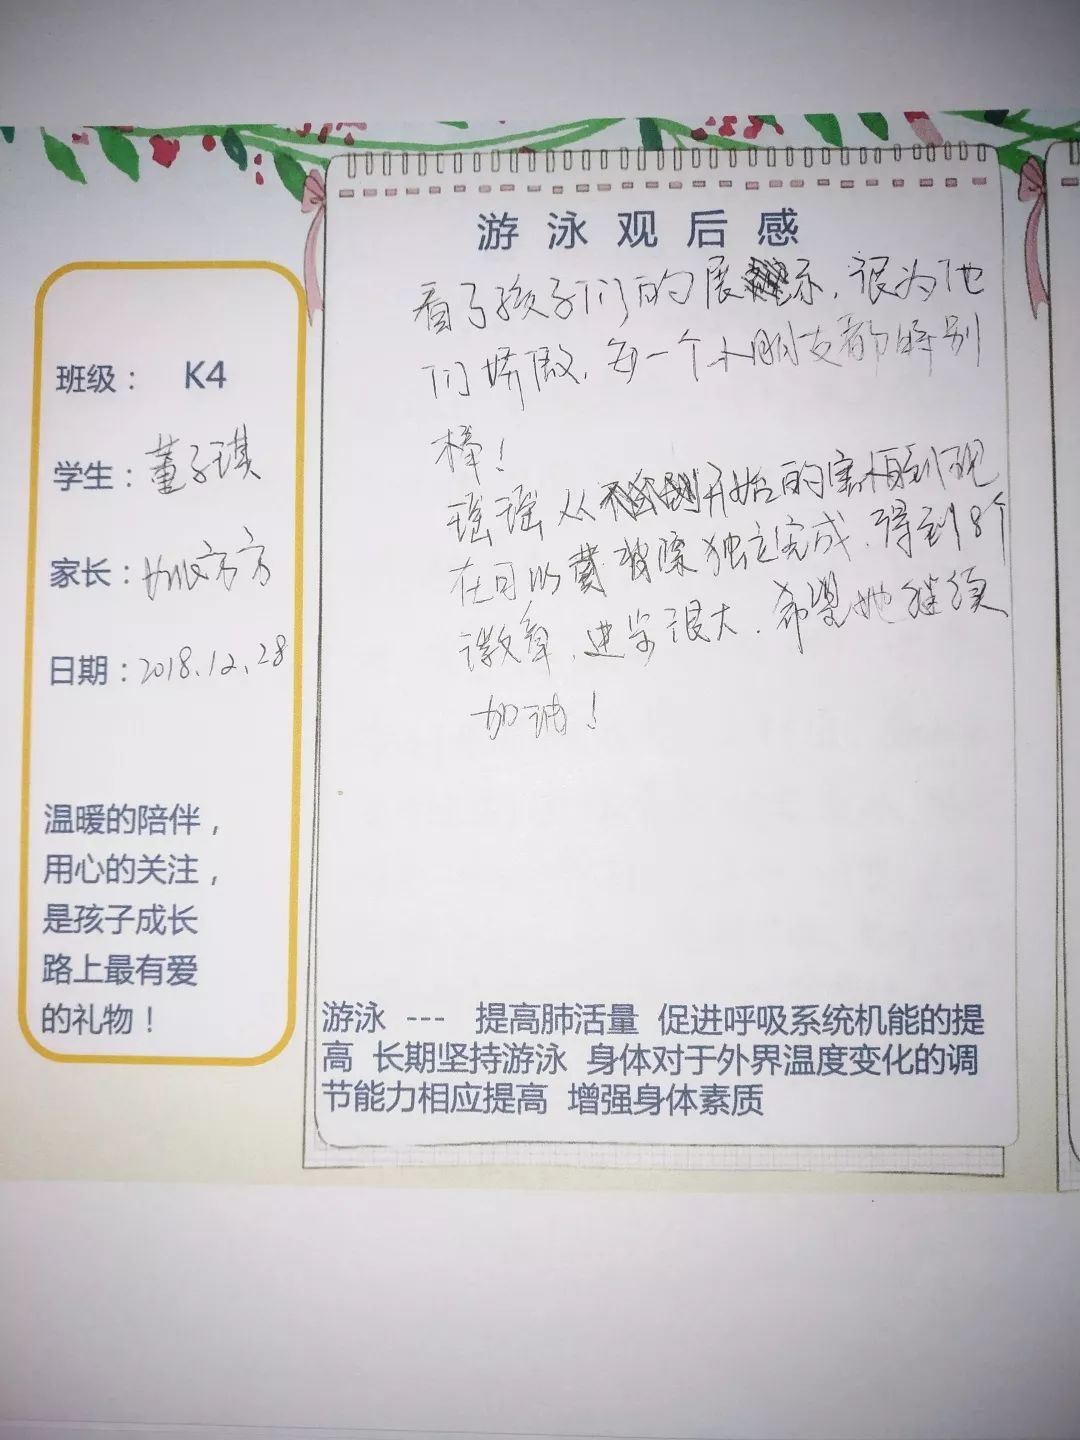 游泳观后感
看了孩子们的展示，很为他
们娇傲，每一个小朋友都特别
棒！
瑶瑶从开始的害怕到现
在可以独立完成，得到8个
徽章，进步很大，希望她继续
加油！
班级： K4
学生：董子琪
家长：方方
日期：2018.12.28
温暖的陪伴，
用心的关注，
是孩子成长
路上最有爱
的礼物！
游泳 --- 提高肺活量 促进呼吸系统机能的提
高 长期坚持游泳 身体对于外界温度变化的调
节能力相应提高 增强身体素质